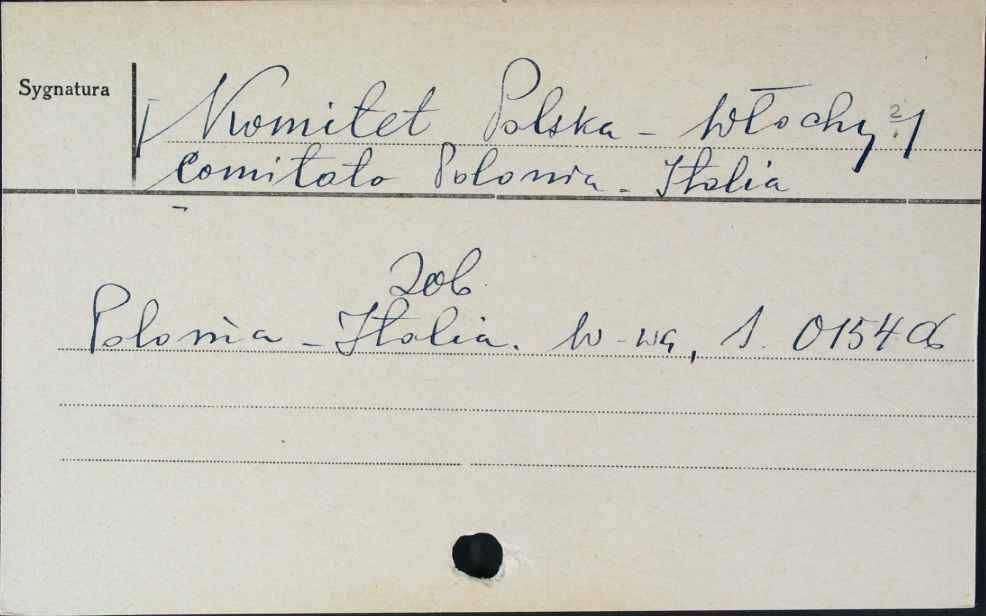 Sygnatura
[Komitet Polska - Włochy ?]
Comitato Polonia - Italia
Zob.
Polonia - Italia. W-wa, S. 0154